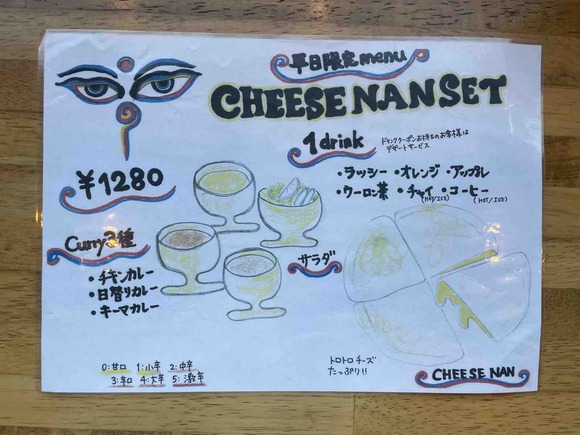 平日限定menu
CHEESE NAN SET
1drink
ドリンククーポンお持ちのお客様は
デザートサービス
・ラッシー・オレンジ・アップル
・ウーロン茶・チャイ・コーヒー
(HOT/ICE) (HOT/ICE)
¥1280
Curry3種
・チキンカレー
・日替りカレー
・キーマカレー
サラダ
0:甘口 1:小辛 2:中辛
3:辛口 4:大辛 5:激辛
トロトロチーズ
たっぷり!!
CHEESE NAN